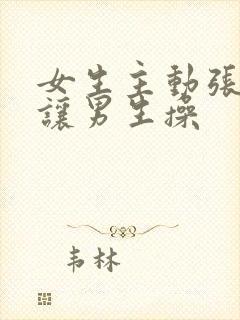 女生主動張
讓男生操
韦林